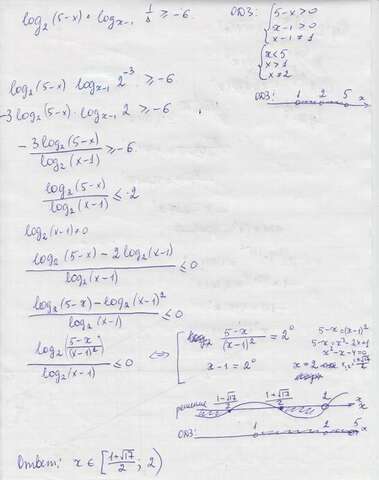 log₂(5-x) · log_{x-1} 1/8 ≥ -6.
ОДЗ: { 5-x>0
x-1>0
x-1≠1
{ x<5
x>1
x≠2
ОДЗ: 1 2 5 x
log₂(5-x) log_{x-1} 2⁻³ ≥ -6
-3log₂(5-x) · log_{x-1} 2 ≥ -6
-3log₂(5-x) / log₂(x-1) ≥ -6
log₂(5-x) / log₂(x-1) ≤ -2
log₂(x-1) ≠ 0
log₂(5-x) - 2log₂(x-1) / log₂(x-1) ≤ 0
log₂(5-x) - log₂(x-1)² / log₂(x-1) ≤ 0
log₂(5-x / (x-1)²) / log₂(x-1) ≤ 0 ⇔ [ 5-x / (x-1)² = 2⁰
x-1 = 2⁰
5-x=(x-1)²
5-x=x²-2x+1
x²-x-4=0
x=2
решение 1-√17/2 1+√17/2 2 x
ОДЗ: 1 2 5 x
Ответ: x ∈ [1+√17/2 ; 2)